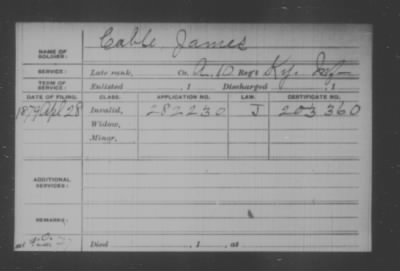 NAME OF SOLDIER: Cable James
SERVICE: Late rank, Co. Reg't Ky. Inf
TERM OF SERVICE: Enlisted , 1 Discharged , 1
DATE OF FILING. CLASS. APPLICATION NO. LAW. CERTIFICATE NO.
1879 Apl 28 Invalid, 282230 J 203360
Widow,
Minor,
ADDITIONAL SERVICES:
REMARKS:
Died , 1 , at